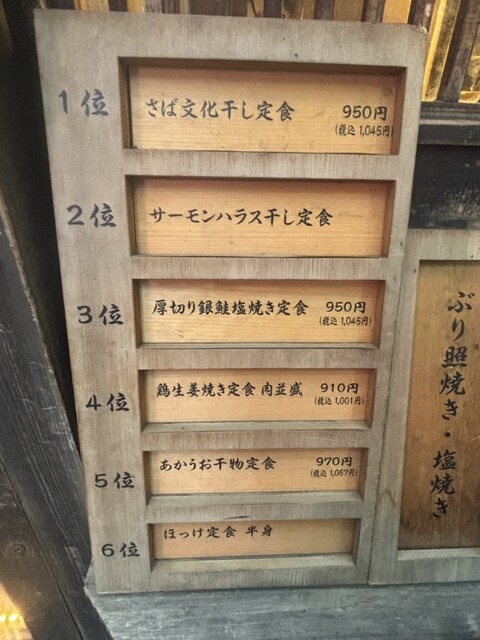 1位
さば文化干し定食 950円
(税込 1,045円)
2位
サーモンハラス干し定食
3位
厚切り銀鮭塩焼き定食 950円
(税込 1,045円)
4位
鶏生姜焼き定食 肉並盛 910円
(税込 1,001円)
5位
あかうお干物定食 970円
(税込 1,067円)
6位
ほっけ定食 半身
ぶり照焼き・塩焼き